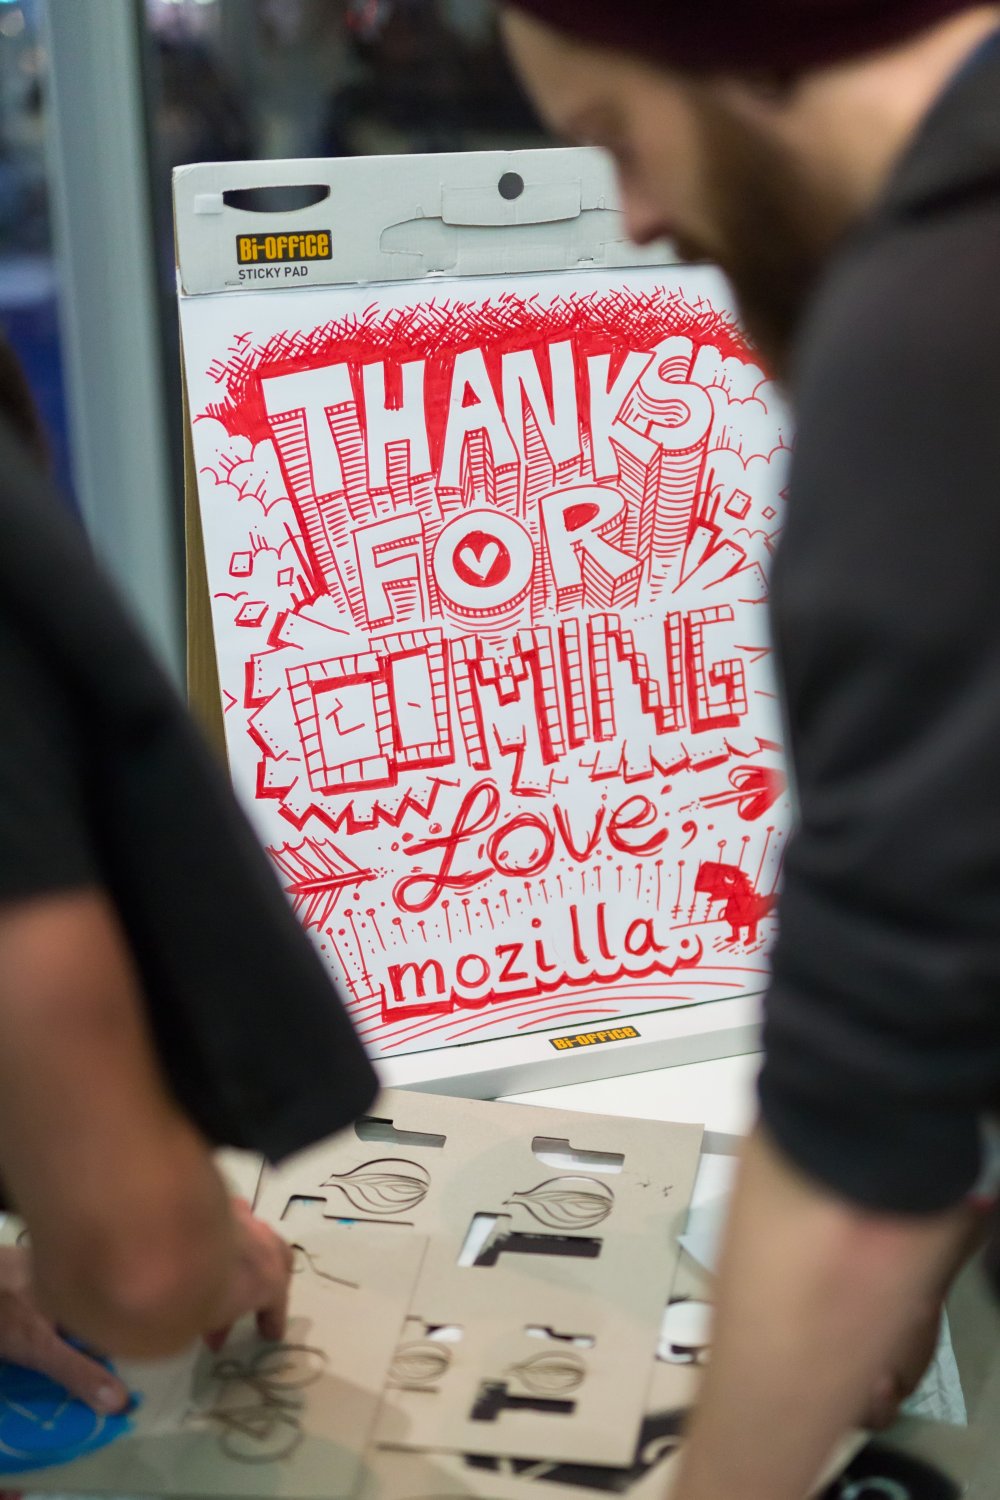 Bi-OFFiCE
STICKY PAD
THANKS
FOR
COMING
Love,
mozilla.
Bi-OFFiCE